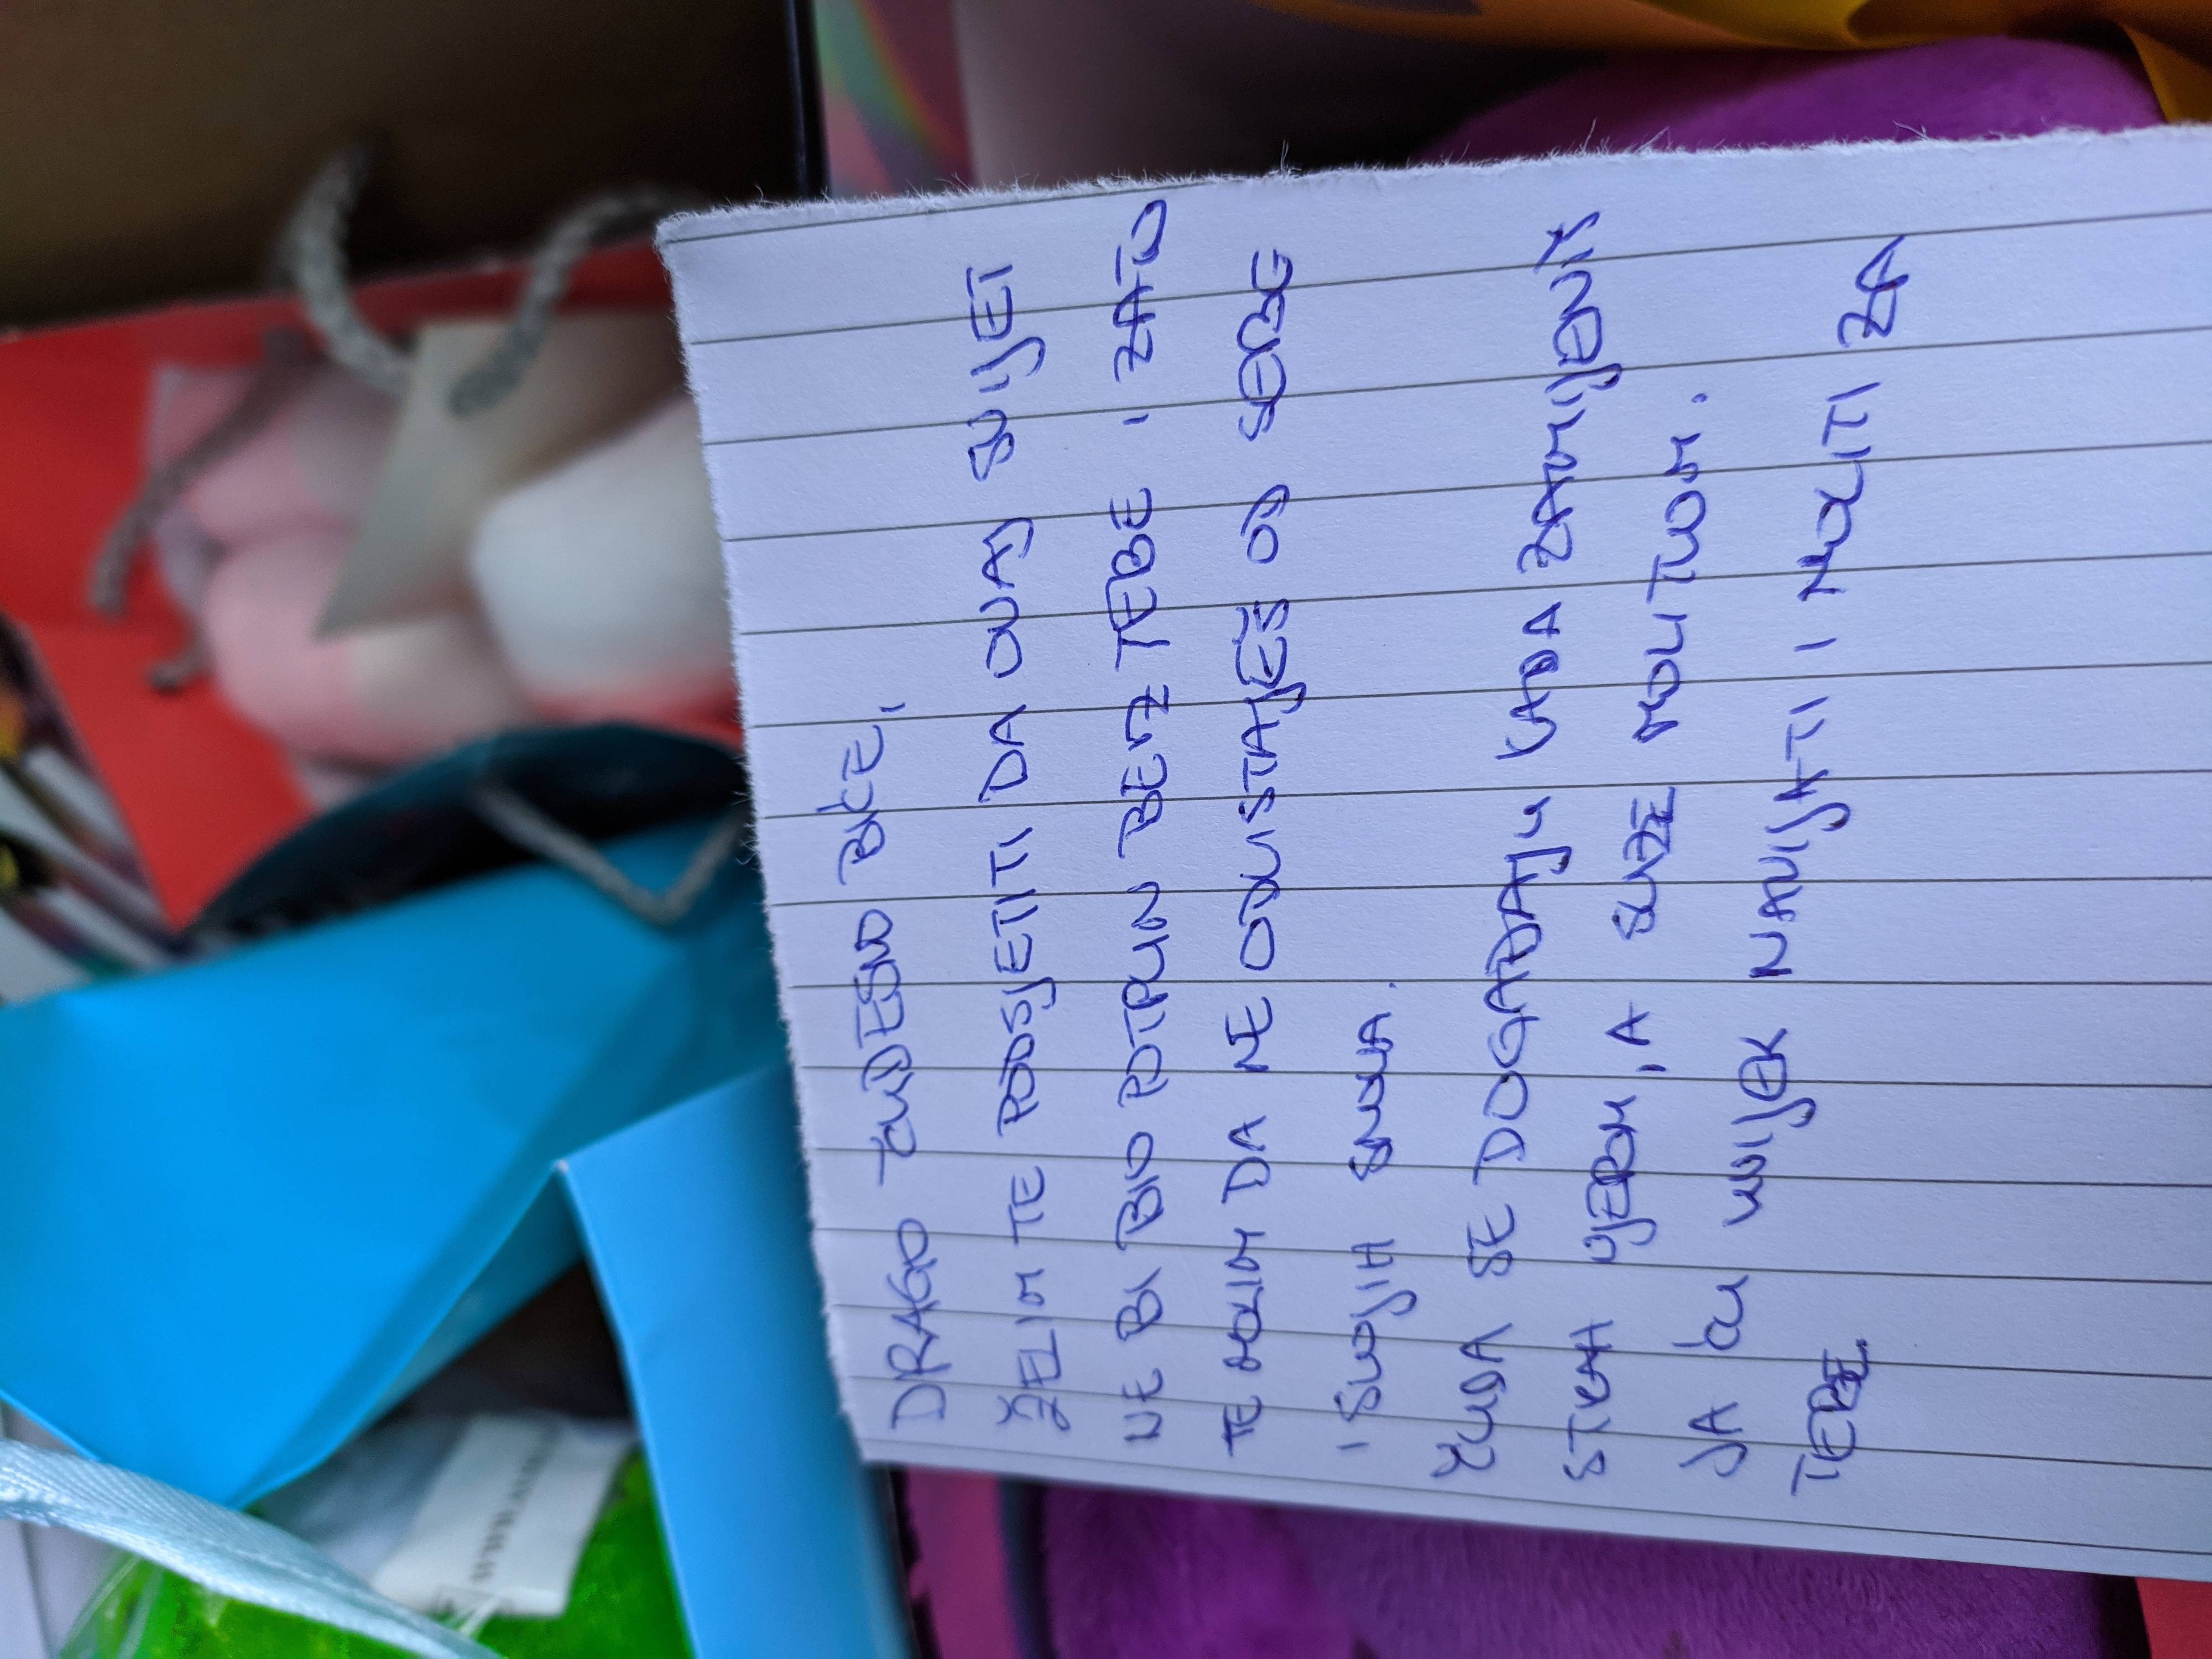 DRAGO ČUDESNO BIĆE,
ŽELIM TE PODSJETITI DA OVAJ SVIJET
NE BI BIO POTPUN BEZ TEBE I ZATO
TE MOLIM DA NE ODUSTAJEŠ OD SEBE
I SVOJIH SNOVA.
ČUDA SE DOGAĐAJU KADA ZAMIJENIŠ
STRAH VJEROM, A SUZE MOLITVOM.
JA ĆU UVIJEK NAVIJATI I MOLITI ZA
TEBE.